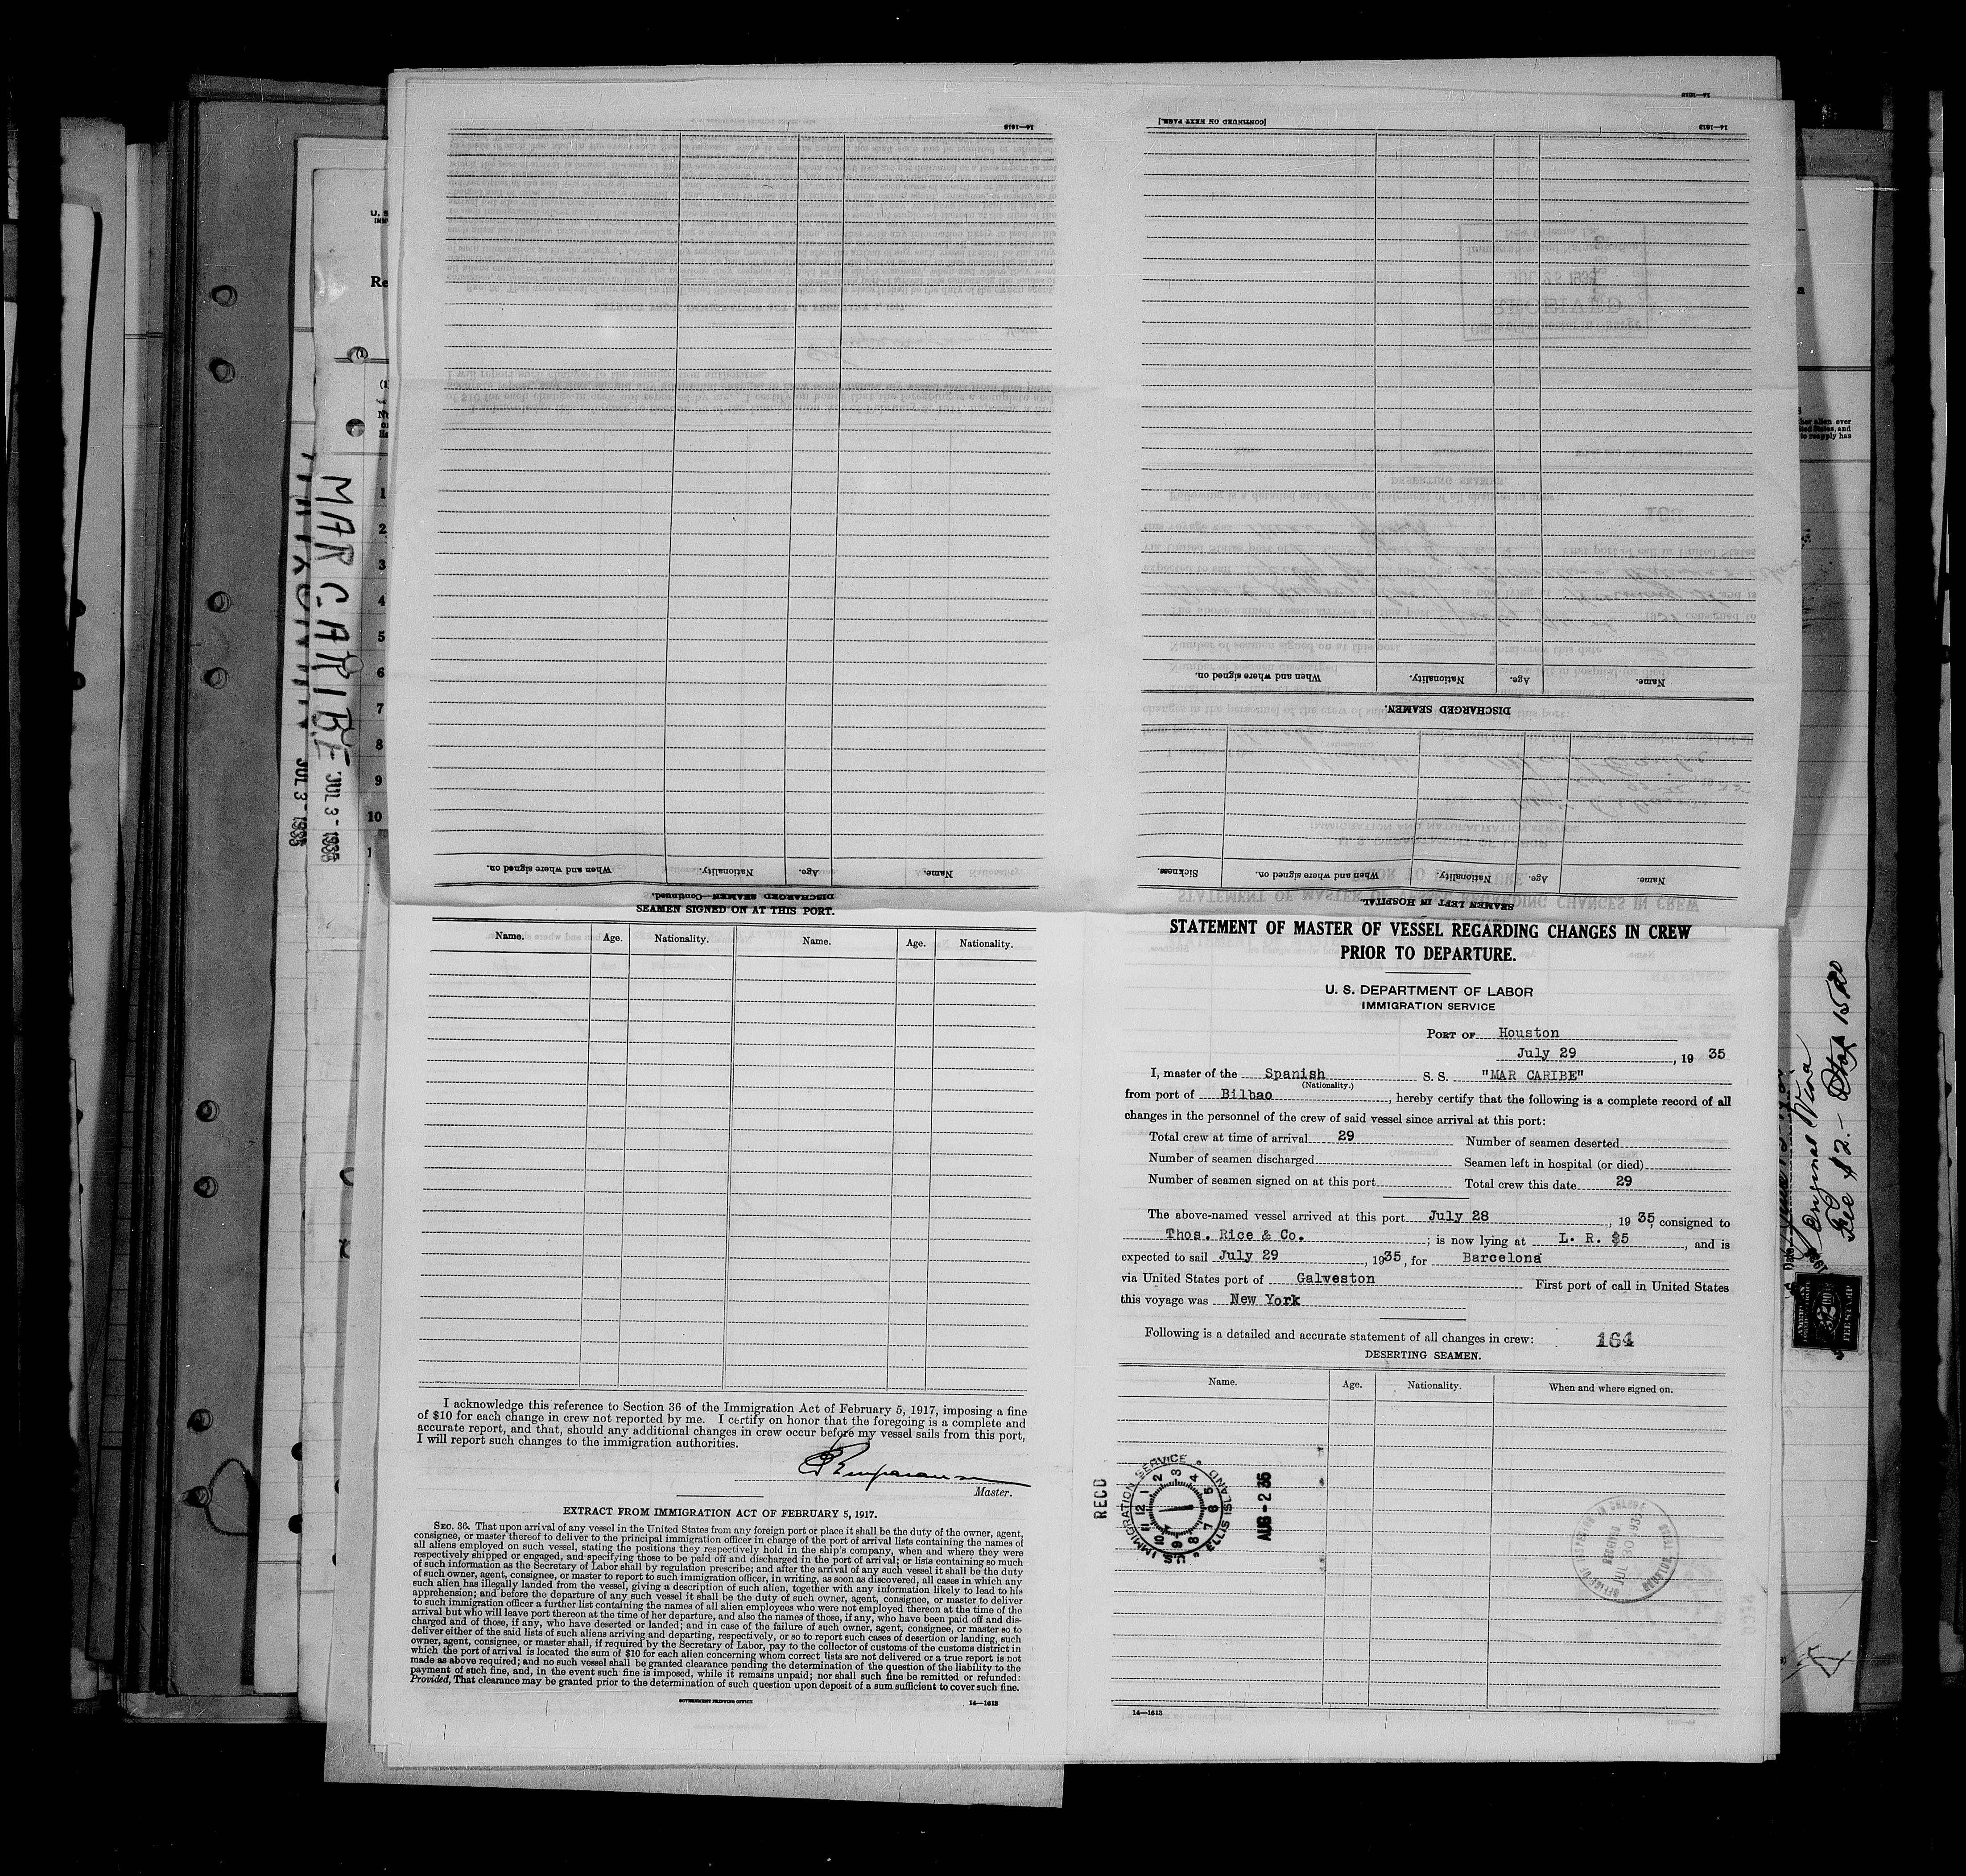 MAR CARIBE JUL 3 - 1935
JUL 3 - 1935
14—1613
[CONTINUED ON NEXT PAGE.]
14—1613
14—1613
Name. Age. Nationality. When and where signed on.
DISCHARGED SEAMEN.
Name. Age. Nationality. When and where signed on. Sickness.
SEAMEN LEFT IN HOSPITAL.
Name. Age. Nationality. When and where signed on.
DISCHARGED SEAMEN—Continued.
SEAMEN SIGNED ON AT THIS PORT.
Name. Age. Nationality. Name. Age. Nationality.
I acknowledge this reference to Section 36 of the Immigration Act of February 5, 1917, imposing a fine
of $10 for each change in crew not reported by me. I certify on honor that the foregoing is a complete and
accurate report, and that, should any additional changes in crew occur before my vessel sails from this port,
I will report such changes to the immigration authorities.
Master.
EXTRACT FROM IMMIGRATION ACT OF FEBRUARY 5, 1917.
SEC. 36. That upon arrival of any vessel in the United States from any foreign port or place it shall be the duty of the owner, agent,
consignee, or master thereof to deliver to the principal immigration officer in charge of the port of arrival lists containing the names of
all aliens employed on such vessel, stating the positions they respectively hold in the ship's company, when and where they were
respectively shipped or engaged, and specifying those to be paid off and discharged in the port of arrival; or lists containing so much
of such information as the Secretary of Labor shall by regulation prescribe; and after the arrival of any such vessel it shall be the duty
of such owner, agent, consignee, or master to report to such immigration officer, in writing, as soon as discovered, all cases in which any
such alien has illegally landed from the vessel, giving a description of such alien, together with any information likely to lead to his
apprehension; and before the departure of any such vessel it shall be the duty of such owner, agent, consignee, or master to deliver
to such immigration officer a further list containing the names of all alien employees who were not employed thereon at the time of the
arrival but who will leave port thereon at the time of her departure, and also the names of those, if any, who have been paid off and dis-
charged and of those, if any, who have deserted or landed; and in case of the failure of such owner, agent, consignee, or master so to
deliver either of the said lists of such aliens arriving and departing, respectively, or so to report such cases of desertion or landing, such
owner, agent, consignee, or master shall, if required by the Secretary of Labor, pay to the collector of customs of the customs district in
which the port of arrival is located the sum of $10 for each alien concerning whom correct lists are not delivered or a true report is not
made as above required; and no such vessel shall be granted clearance pending the determination of the question of the liability to the
payment of such fine, and, in the event such fine is imposed, while it remains unpaid; nor shall such fine be remitted or refunded:
Provided, That clearance may be granted prior to the determination of such question upon deposit of a sum sufficient to cover such fine.
GOVERNMENT PRINTING OFFICE
14—1613
STATEMENT OF MASTER OF VESSEL REGARDING CHANGES IN CREW
PRIOR TO DEPARTURE.
U. S. DEPARTMENT OF LABOR
IMMIGRATION SERVICE
PORT OF Houston
July 29, 19 35
I, master of the Spanish S. S. "MAR CARIBE"
(Nationality.)
from port of Bilbao, hereby certify that the following is a complete record of all
changes in the personnel of the crew of said vessel since arrival at this port:
Total crew at time of arrival 29 Number of seamen deserted
Number of seamen discharged Seamen left in hospital (or died)
Number of seamen signed on at this port Total crew this date 29
The above-named vessel arrived at this port July 28, 19 35, consigned to
Thos. Rice & Co.; is now lying at L. R. #5, and is
expected to sail July 29, 1935, for Barcelona
via United States port of Galveston First port of call in United States
this voyage was New York
Following is a detailed and accurate statement of all changes in crew: 164
DESERTING SEAMEN.
Name. Age. Nationality. When and where signed on.
REC'D
U.S. IMMIGRATION SERVICE ELLIS ISLAND
12 1 2 3 4 5 6 7 8 9 10 11
AUG - 2 35
RECEIVED
JUL 30 193
14—1613
Original Visa
Fee $2.-
1
2
3
4
5
6
7
8
9
10